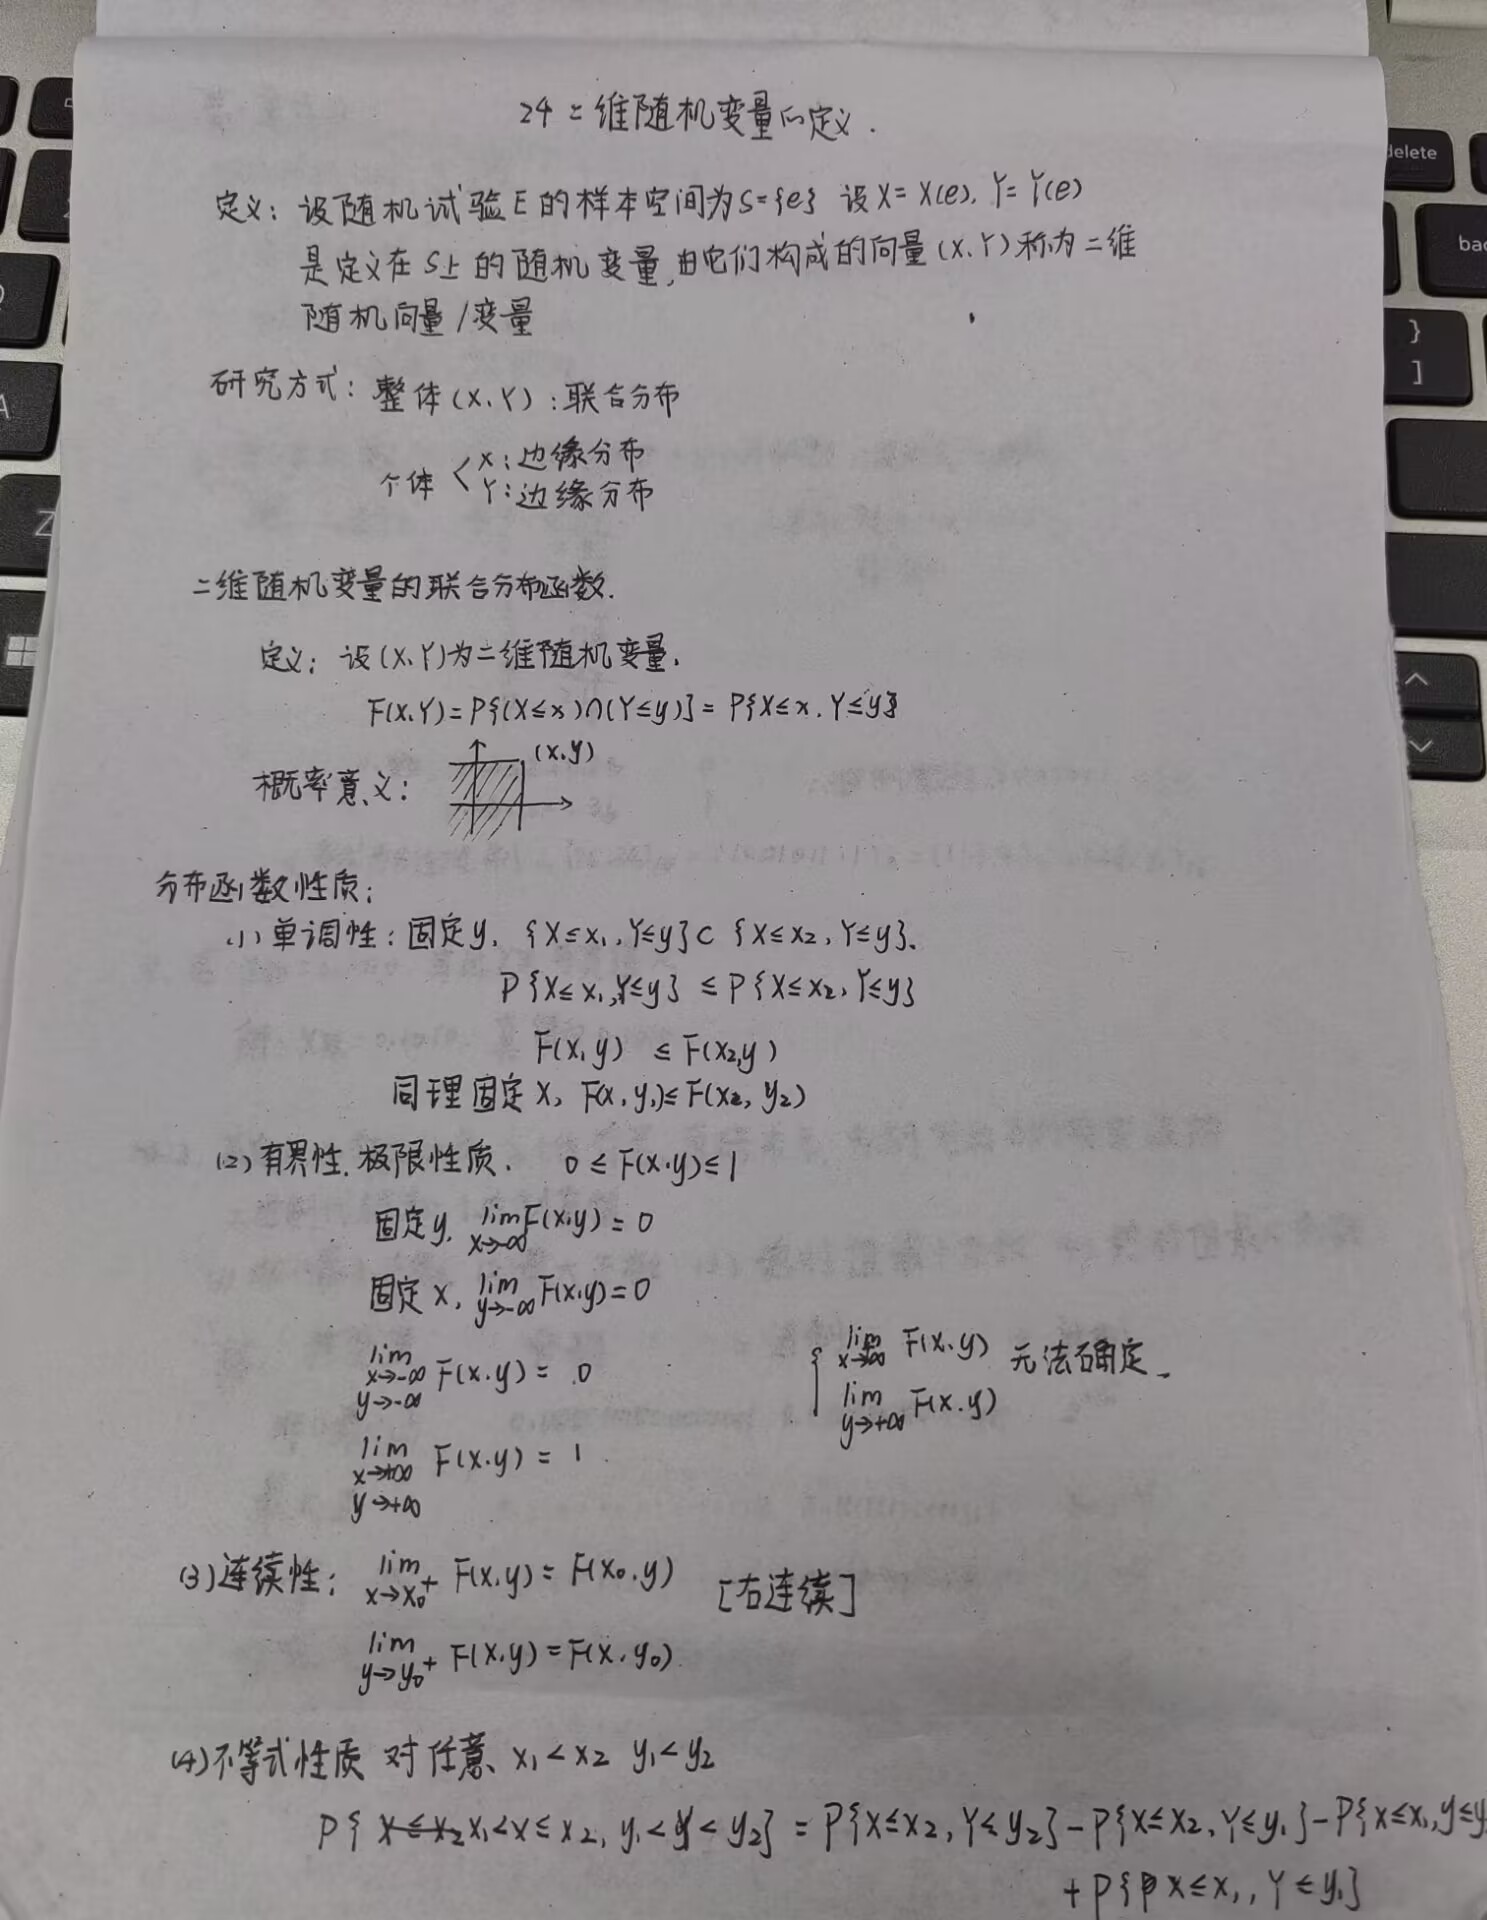 24 二维随机变量的定义.
定义: 设随机试验E的样本空间为S={e} 设X=X(e), Y=Y(e)
是定义在S上的随机变量,由它们构成的向量(X,Y)称为二维
随机向量/变量
研究方式: 整体(X,Y): 联合分布
个体 < X: 边缘分布
Y: 边缘分布
二维随机变量的联合分布函数.
定义: 设(X,Y)为二维随机变量.
F(X,Y)=P{(X≤x)∩(Y≤y)}=P{X≤x, Y≤y}
概率意义: (x,y)
分布函数性质:
(1)单调性: 固定y, {X≤x₁,Y≤y}⊂{X≤x₂,Y≤y}.
P{X≤x₁,Y≤y} ≤ P{X≤x₂,Y≤y}
F(x₁y) ≤ F(x₂,y)
同理固定X, F(x,y₁)≤F(x₂,y₂)
(2)有界性.极限性质. 0≤F(x,y)≤1
固定y, lim x→-∞ F(x,y)=0
固定x, lim y→-∞ F(x,y)=0
lim x→-∞ y→-∞ F(x,y)=0
{ lim x→+∞ F(x,y) 无法确定.
lim y→+∞ F(x,y)
lim x→+∞ y→+∞ F(x,y)=1
(3)连续性: lim x→x₀⁺ F(x,y)=F(x₀,y) [右连续]
lim y→y₀⁺ F(x,y)=F(x,y₀)
(4)不等式性质 对任意 x₁<x₂ y₁<y₂
P{x₁<x≤x₂, y₁<y<y₂}=P{X≤x₂,Y≤y₂}-P{X≤x₂,Y≤y₁}-P{x≤x₁,y≤y
+P{X≤x₁, Y≤y₁}